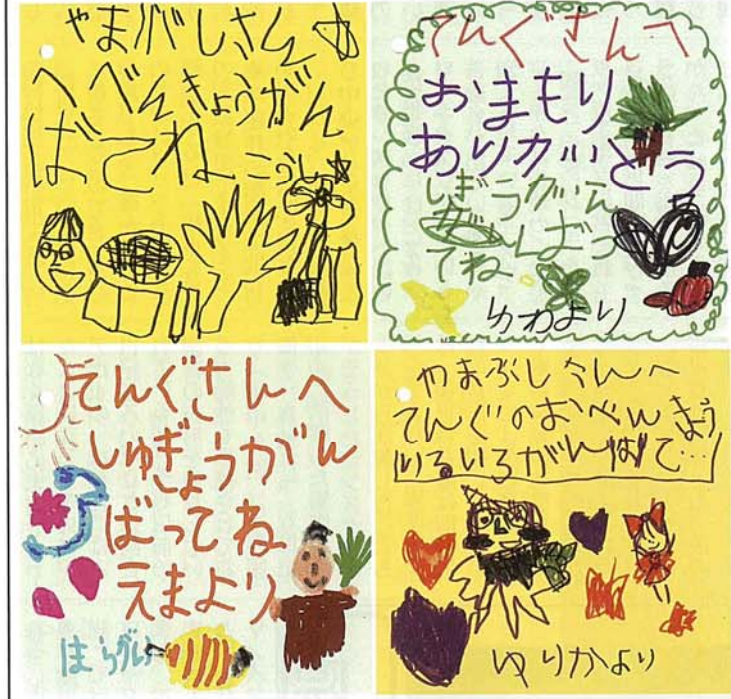 やまぶしさん
へべんきょうがん
ばてね こうし
てんぐさんへ
おまもり
ありがとう
しぎうがん
がんばっ
てね
ゆわより
てんぐさんへ
しゅぎょうがん
ばってね
えまより
ほらがい
やまぶしさんへ
てんぐのおべんきょう
いろいろがんばて…
ゆりかより